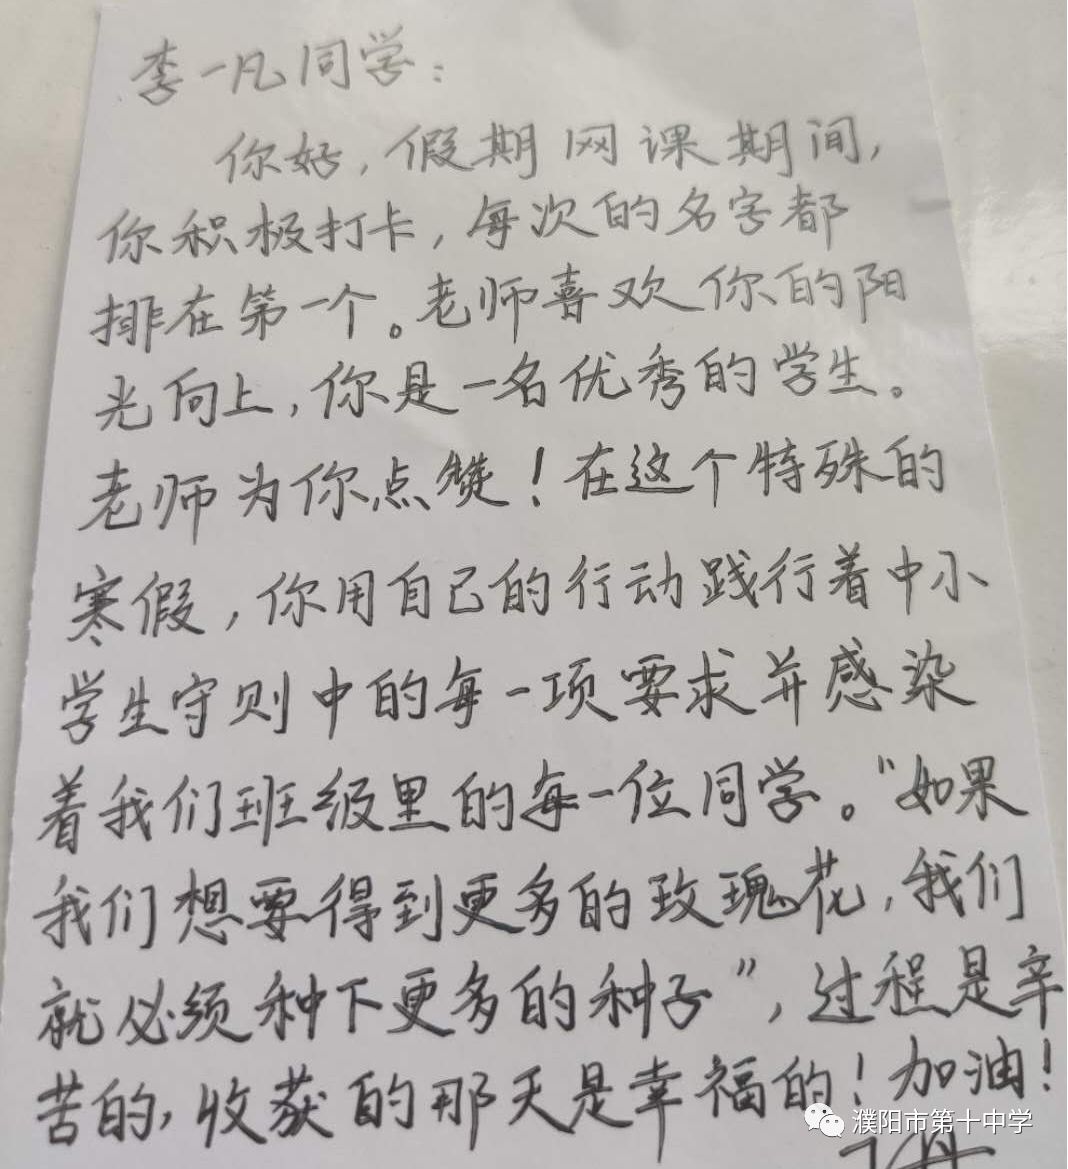 李一凡同学：
你好，假期网课期间，
你积极打卡，每次的名字都
排在第一个。老师喜欢你的阳
光向上，你是一名优秀的学生。
老师为你点赞！在这个特殊的
寒假，你用自己的行动践行着中小
学生守则中的每一项要求并感染
着我们班级里的每一位同学。“如果
我们想要得到更多的玫瑰花，我们
就必须种下更多的种子”，过程是辛
苦的，收获的那天是幸福的！加油！
濮阳市第十中学